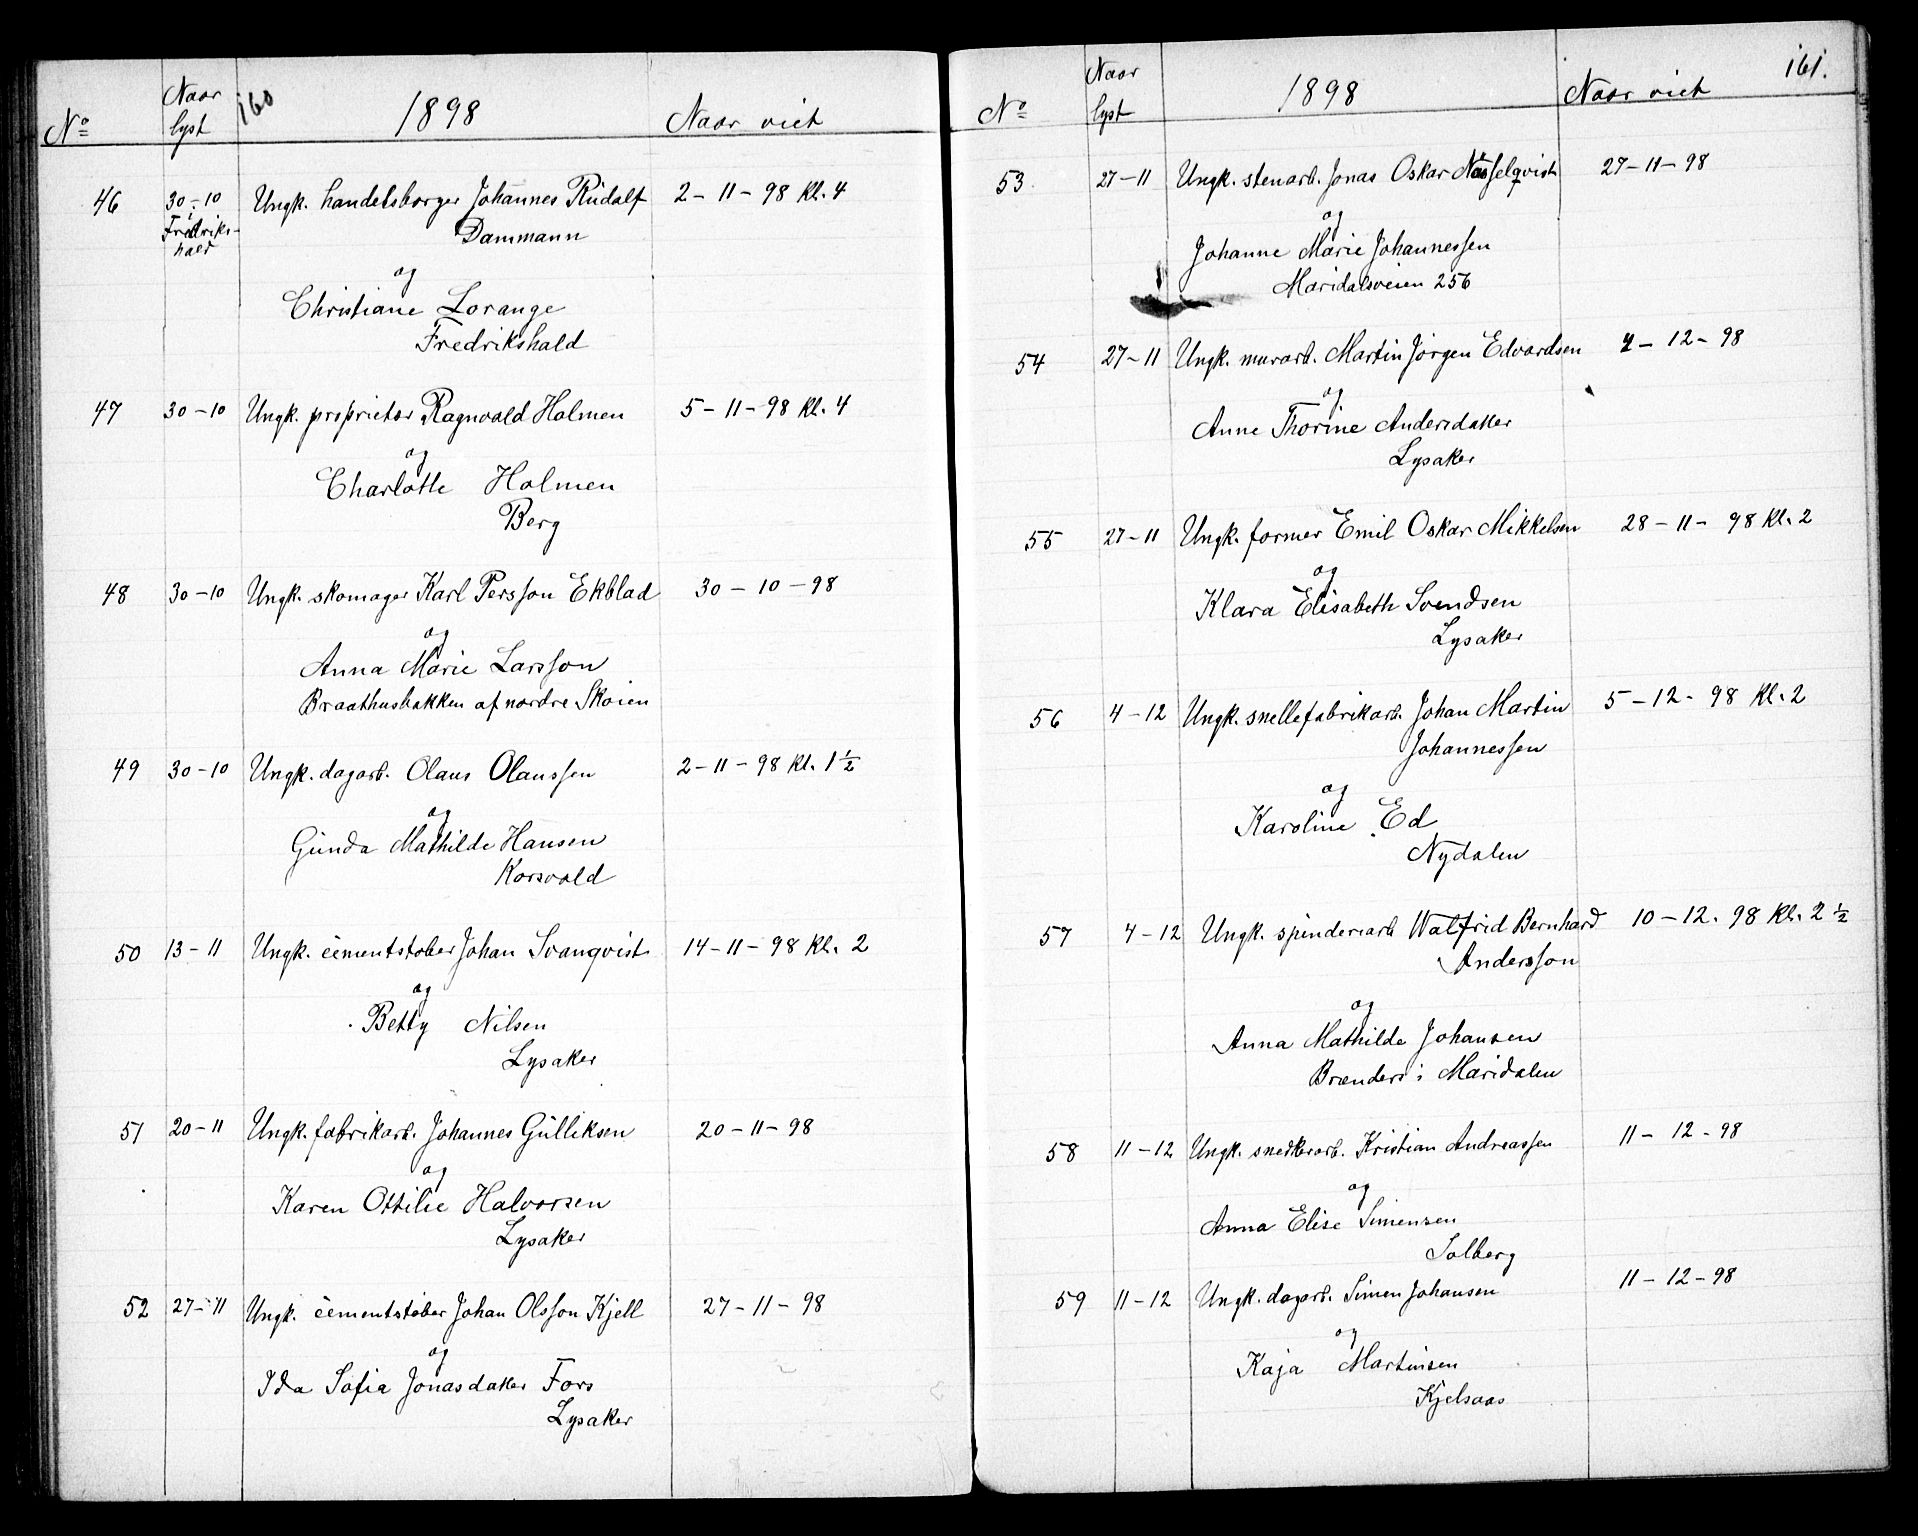 160
No Naar lyst 1898 Naar viet
46 30-10 i Fredrikshald Ungk. handelsborger Johannes Rudolf 2-11-98 Kl. 4
Dammann
og
Christiane Lorange
Fredrikshald
47 30-10 Ungk. proprietær Ragnvald Holmen 5-11-98 Kl. 4
og
Charlotte Holmen
Berg
48 30-10 Ungk. skomager Karl Persson Ekblad 30-10-98
og
Anna Marie Larsson
Braathusbakken af nordre Skøien
49 30-10 Ungk. dagarb. Olaus Olaussen 2-11-98 Kl. 1½
og
Gunda Mathilde Hansen
Korsvold
50 13-11 Ungk. cementstøber Johan Svanqvist 14-11-98 Kl. 2
og
Betty Nilsen
Lysaker
51 20-11 Ungk. fabrikarb. Johannes Gulliksen 20-11-98
og
Karen Ottilie Halvorsen
Lysaker
52 27-11 Ungk. cementstøber Johan Olsson Kjell 27-11-98
og
Ida Sofia Jonasdaker Fors
Lysaker
161.
No Naar lyst 1898 Naar viet
53 27-11 Ungk. stenarb. Jonas Oskar Nasselqvist 27-11-98
og
Johanne Marie Johannessen
Maridalsveien 256
54 27-11 Ungk. murarb. Martin Jørgen Edvardsen 4-12-98
og
Anne Thorine Andersdaker
Lysaker
55 27-11 Ungk. former Emil Oskar Mikkelsen 28-11-98 Kl. 2
og
Klara Elisabeth Svendsen
Lysaker
56 4-12 Ungk. snellefabrikarb. Johan Martin 5-12-98 Kl. 2
Johannessen
og
Karoline Ed
Nydalen
57 4-12 Ungk. spinderiarb Walfrid Bernhard 10-12-98 Kl. 2½
Andersson
og
Anna Mathilde Johansen
Brænderi i Maridalen
58 11-12 Ungk. snedkerarb. Kristian Andreassen 11-12-98
og
Anna Elise Simensen
Solberg
59 11-12 Ungk. dagarb. Simen Johansen 11-12-98
og
Kaja Martinsen
Kjelsaas